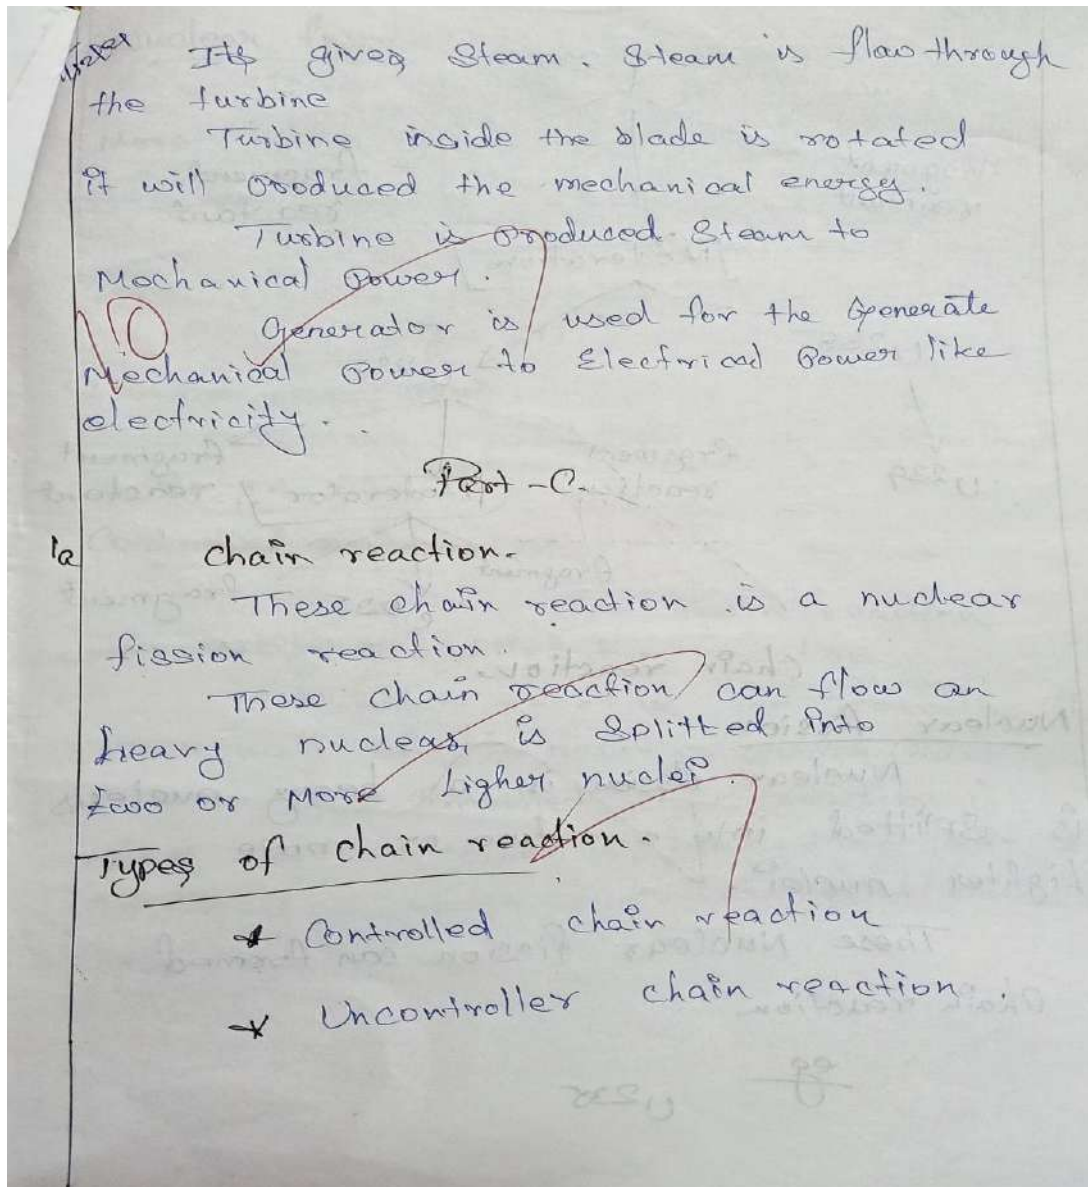 Water
Its gives Steam. Steam is flow through
the turbine
Turbine inside the blade is rotated
it will produced the mechanical energy.
Turbine is produced Steam to
Mechanical Power.
10
Generator is used for the Generate
Mechanical Power to Electrical Power like
electricity.
Part - C.
1a
chain reaction.
These chain reaction is a nuclear
fission reaction.
These chain reaction can flow an
heavy nuclear is Splitted into
two or More Ligher nuclei.
Types of chain reaction.
* Controlled chain reaction
* Uncontroller chain reaction.